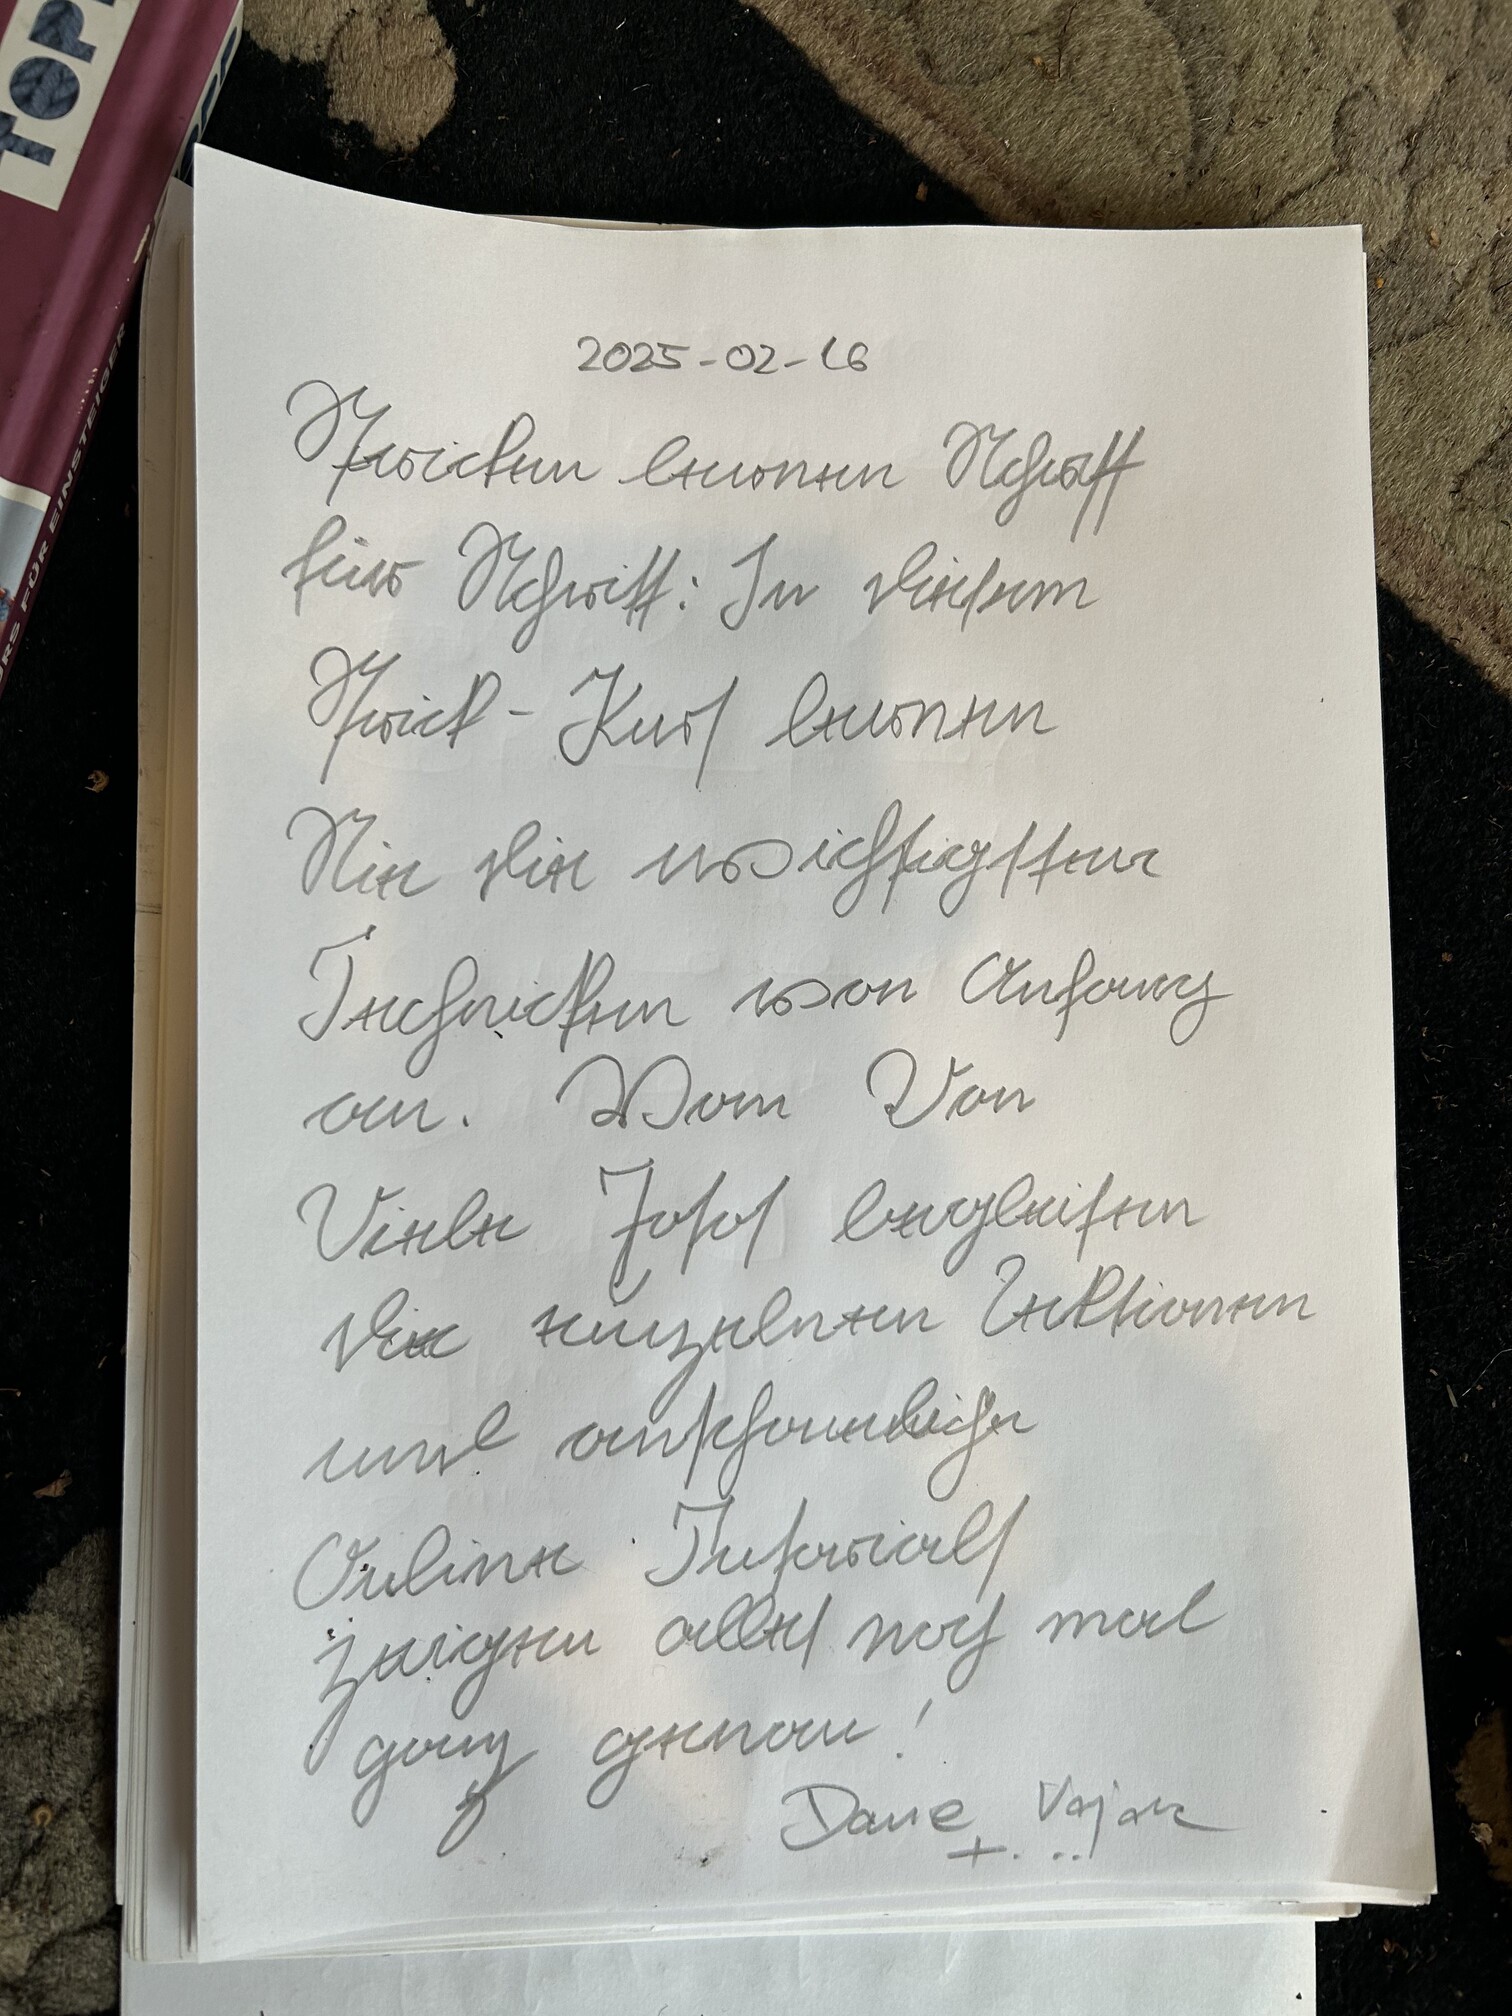 TOP
RS FÜR EINSTEIGER
2025-02-16
Stricken lernen Schritt
für Schritt: In diesem
Strick-Kurs lernen
Sie die wichtigsten
Techniken von Anfang
an. Vom Von
Viele Fotos begleiten
die einzelnen Lektionen
und anschauliche
Online Tutorials
zeigen alles noch mal
ganz genau!
Dave Vajak